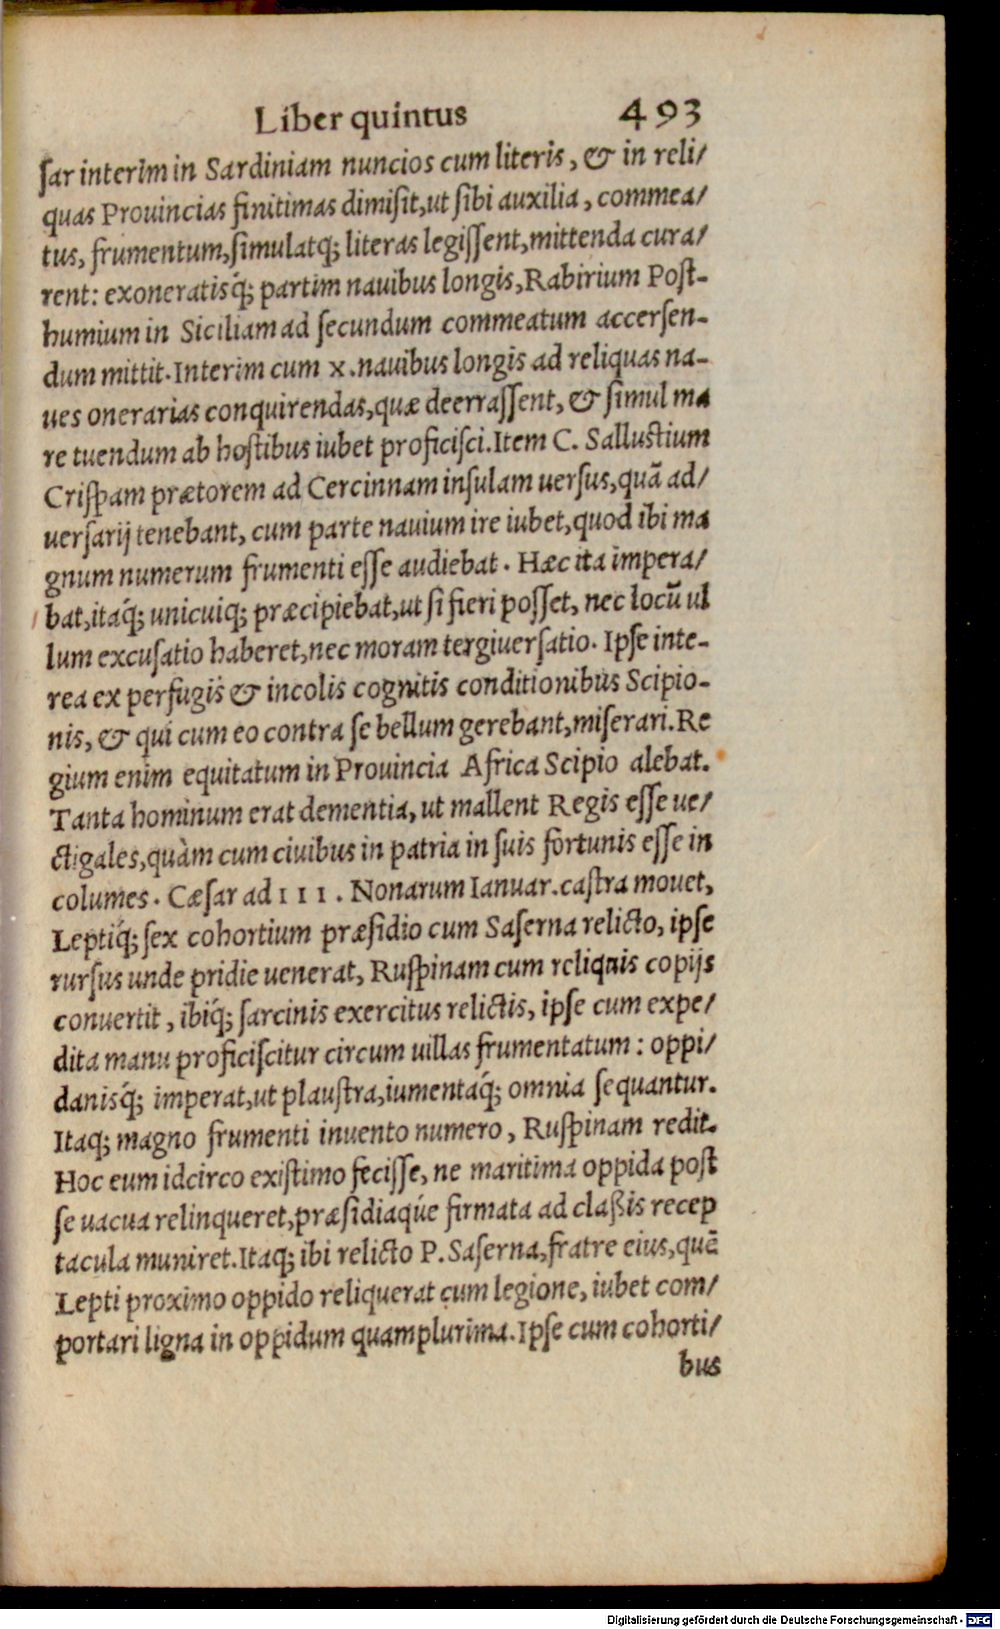 Liber quintus 493
ſar interim in Sardiniam nuncios cum literis, & in reli/
quas Prouincias finitimas dimiſit, ut ſibi auxilia, commea/
tus, frumentum, ſimulatq́; literas legiſſent, mittenda cura/
rent: exoneratisq́; partim nauibus longis, Rabirium Poſt-
humium in Siciliam ad ſecundum commeatum accerſen-
dum mittit. Interim cum x. nauibus longis ad reliquas na-
ues onerarias conquirendas, quæ deerraſſent, & ſimul ma
re tuendum ab hoſtibus iubet proficiſci. Item C. Salluſtium
Criſpam prætorem ad Cercinnam inſulam uerſus, quã ad/
uerſarij tenebant, cum parte nauium ire iubet, quod ibi ma
gnum numerum frumenti eſſe audiebat. Hæc ita impera/
bat, itaq́; unicuiq; præcipiebat, ut ſi fieri poſſet, nec locũ ul
lum excuſatio haberet, nec moram tergiuerſatio. Ipſe inte-
rea ex perfugis & incolis cognitis conditionibus Scipio-
nis, & qui cum eo contra ſe bellum gerebant, miſerari. Re
gium enim equitatum in Prouincia Africa Scipio alebat.
Tanta hominum erat dementia, ut mallent Regis eſſe ue/
ctigales, quàm cum ciuibus in patria in ſuis fortunis eſſe in
columes. Cæſar ad III. Nonarum Ianuar. caſtra mouet,
Leptiq́; ſex cohortium præſidio cum Saſerna relicto, ipſe
rurſus unde pridie uenerat, Ruſpinam cum reliquis copijs
conuertit, ibiq́; ſarcinis exercitus relictis, ipſe cum expe/
dita manu proficiſcitur circum uillas frumentatum: oppi/
danisq́; imperat, ut plauſtra, iumentaq́; omnia ſequantur.
Itaq; magno frumenti inuento numero, Ruſpinam redit.
Hoc eum idcirco exiſtimo feciſſe, ne maritima oppida poſt
ſe uacua relinqueret, præſidiaqúe firmata ad claßis recep
tacula muniret. Itaq; ibi relicto P. Saſerna, fratre eius, quẽ
Lepti proximo oppido reliquerat cum legione, iubet com/
portari ligna in oppidum quamplurima. Ipſe cum cohorti/
bus
Digitalisierung gefördert durch die Deutsche Forschungsgemeinschaft - DFG